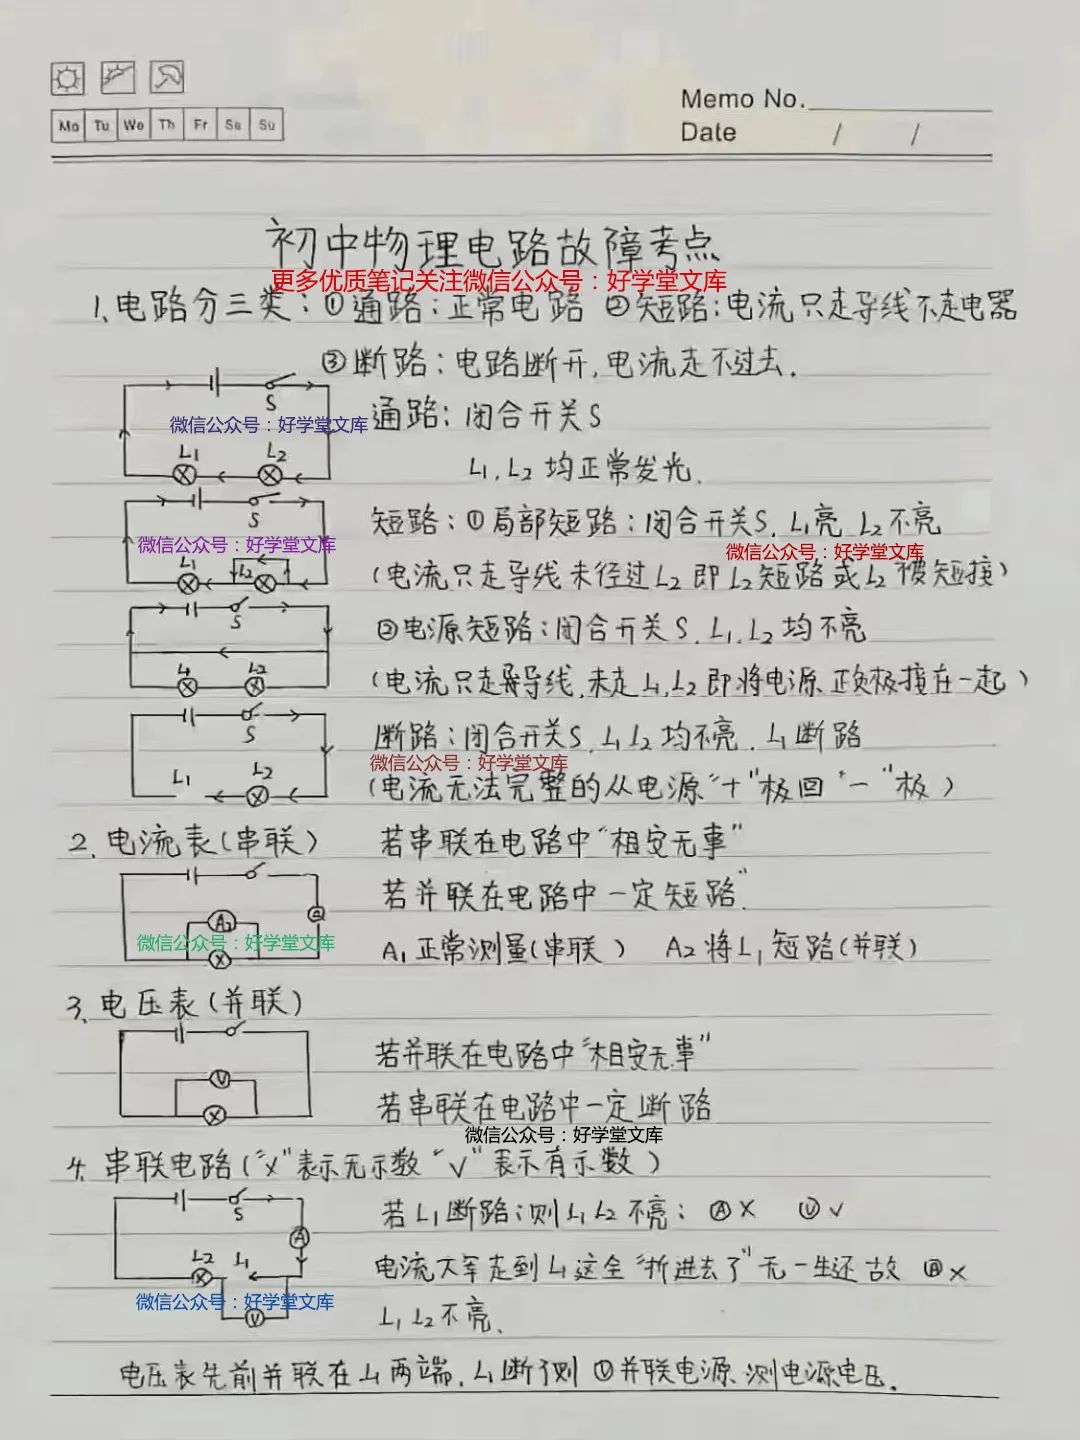 Memo No.
Mo Tu We Th Fr Sa Su
Date / /
初中物理电路故障考点
更多优质笔记关注微信公众号：好学堂文库
1、电路分三类：①通路：正常电路 ②短路：电流只走导线不走电器
③断路：电路断开，电流走不过去．
S
微信公众号：好学堂文库
通路：闭合开关S
L1 L2
L1、L2 均正常发光．
S
短路：①局部短路：闭合开关S、L1亮 L2不亮
微信公众号：好学堂文库
微信公众号：好学堂文库
L1 L2
（电流只走导线未径过L2 即L2短路或L2被短接）
S
②电源短路：闭合开关S、L1、L2均不亮
L1 L2
（电流只走导线，未走L1、L2即将电源正负极接在一起）
S
断路：闭合开关S、L1 L2均不亮．L1断路
微信公众号：好学堂文库
L1 L2
（电流无法完整的从电源“十”极回“一”极）
2、电流表（串联） 若串联在电路中“相安无事”
若并联在电路中一定短路”
A2
微信公众号：好学堂文库
A1正常测量（串联） A2将L1短路（并联）
3、电压表（并联）
若并联在电路中“相安无事”
V
若串联在电路中一定断路
微信公众号：好学堂文库
4、串联电路（“x”表示无示数“√”表示有示数）
S
若L1断路；则L1 L2不亮； Ⓐ x Ⓥ √
A
L2 L1
电流大军走到L1这全“折进去了”无一生还故 Ⓐ x
微信公众号：好学堂文库
V
L1 L2不亮．
电压表先前并联在L1两端．L1断了则Ⓥ并联电源测电源电压．